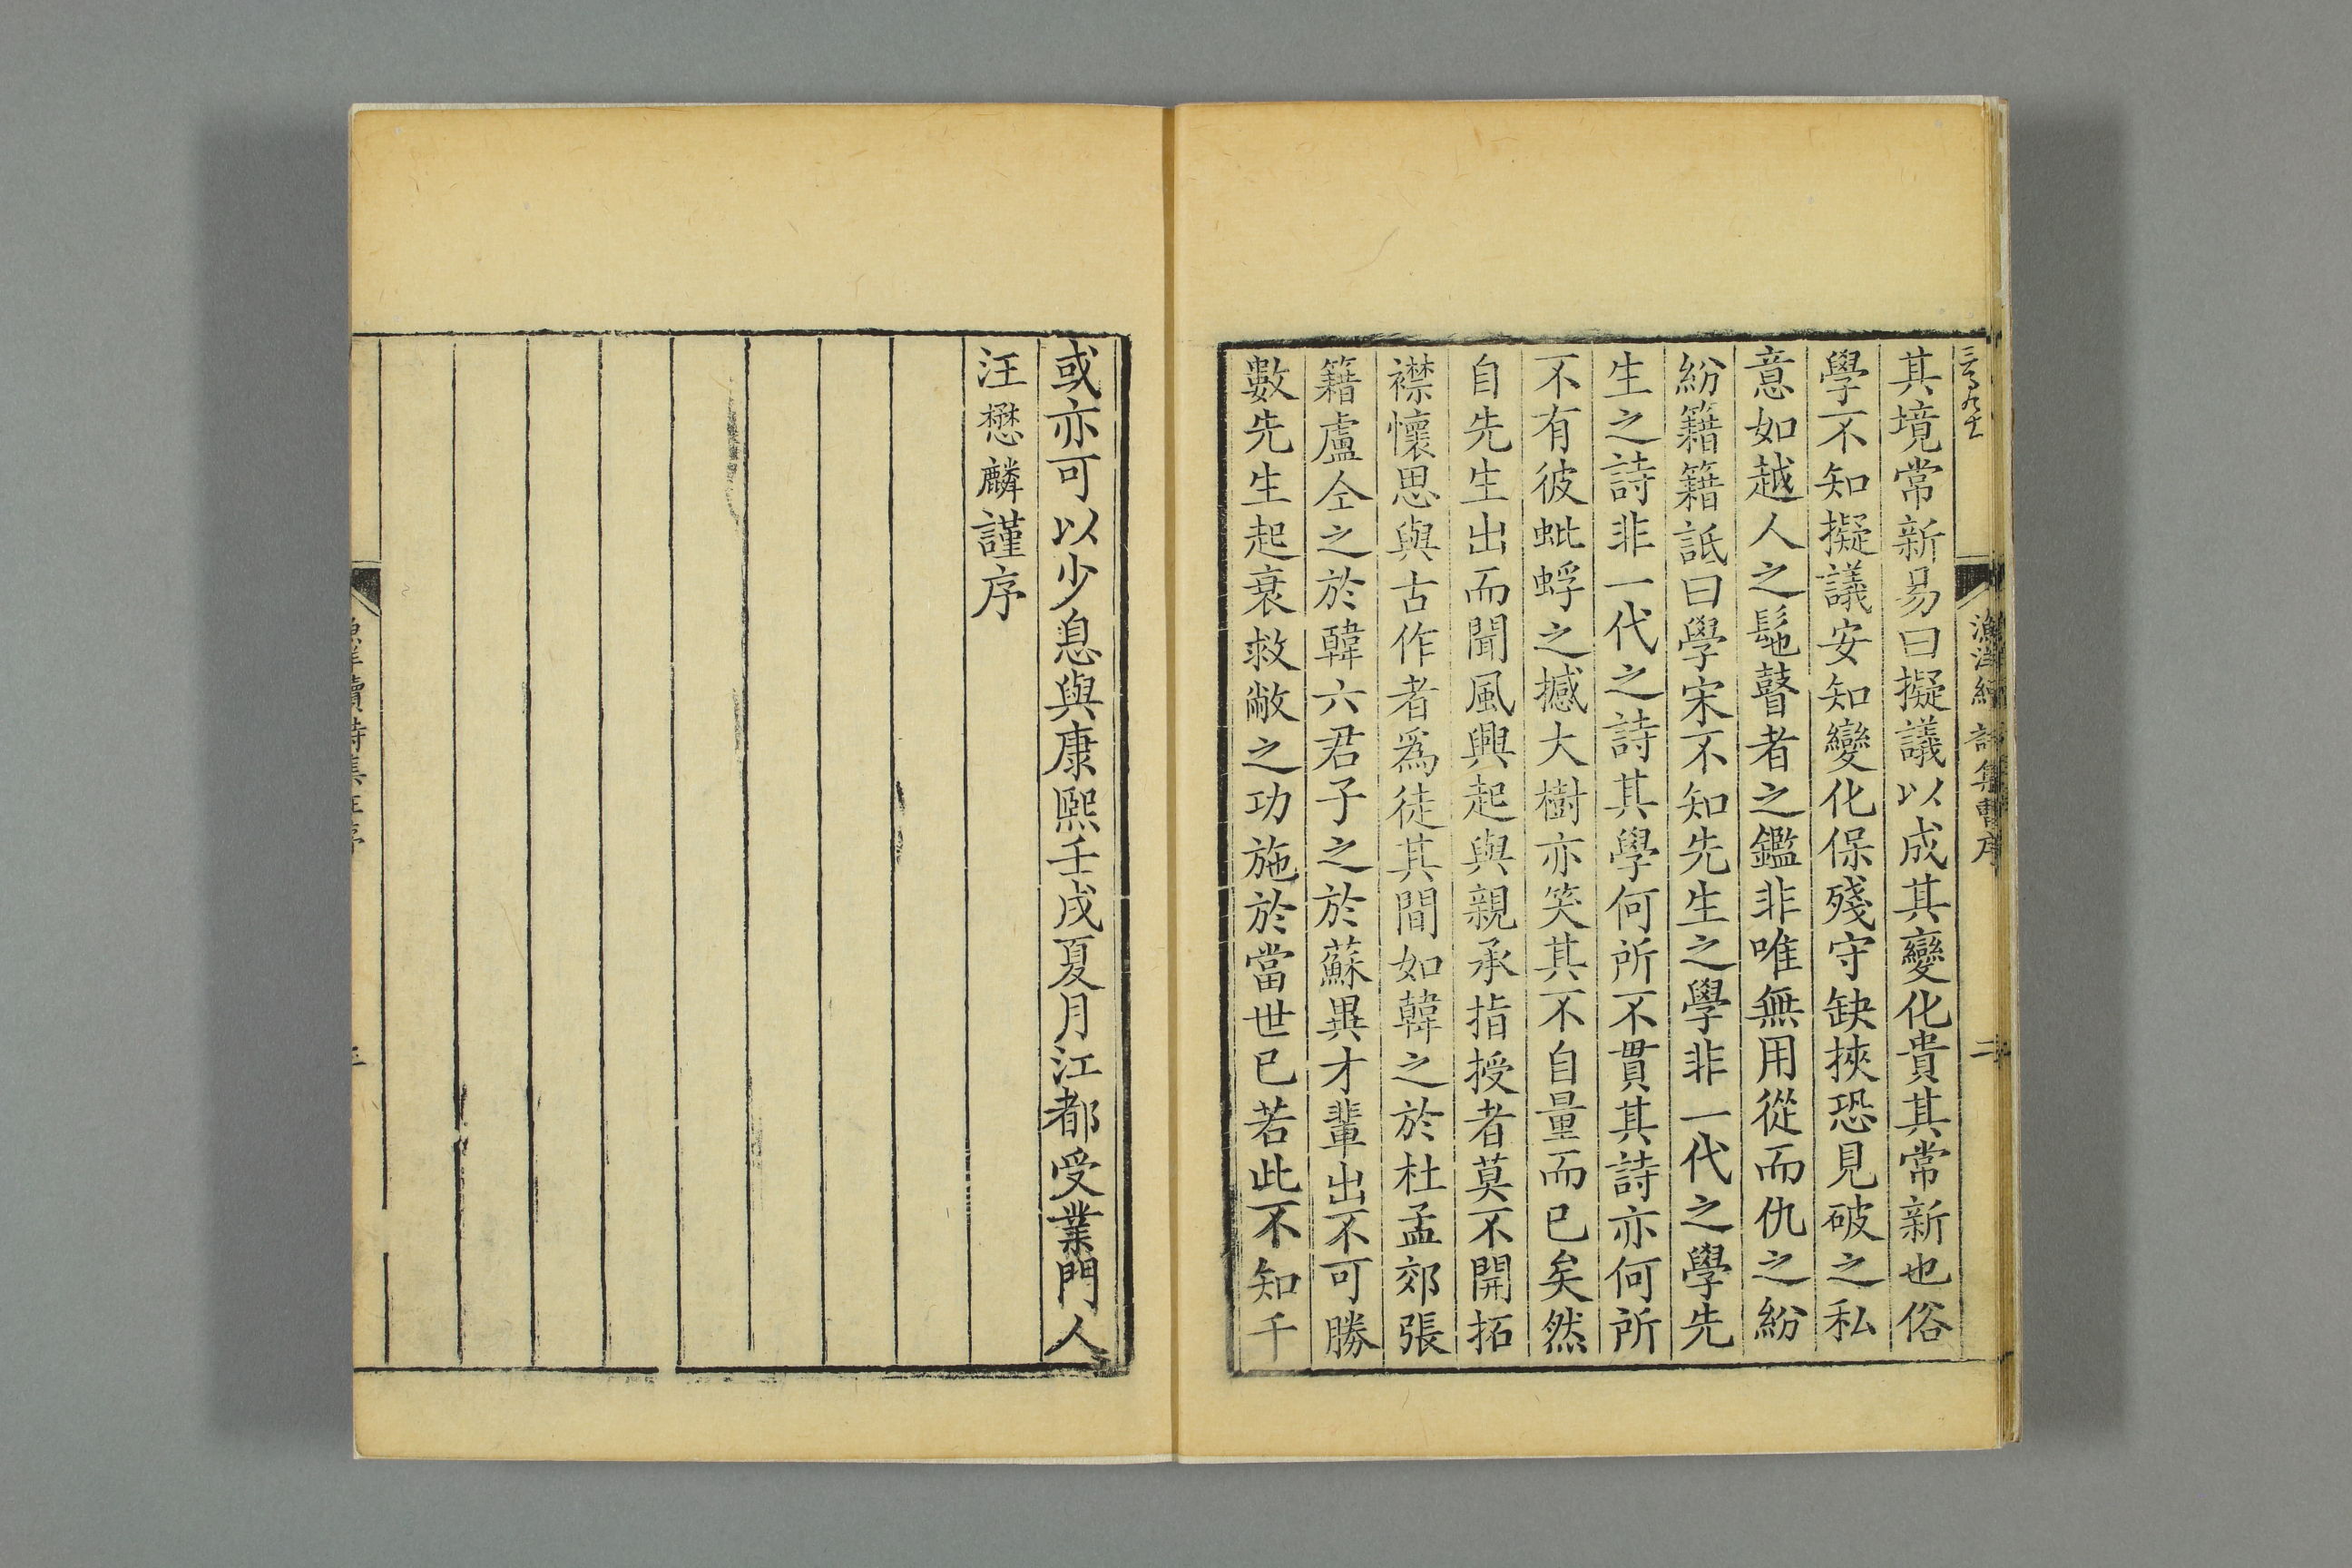 其境常新易曰擬議以成其變化貴其常新也俗
學不知擬議安知變化保殘守缺挾恐見破之私
意如越人之髢瞽者之鑑非唯無用從而仇之紛
紛籍籍詆曰學宋不知先生之學非一代之學先
生之詩非一代之詩其學何所不貫其詩亦何所
不有彼蚍蜉之撼大樹亦笑其不自量而已矣然
自先生出而聞風興起與親承指授者莫不開拓
襟懷思與古作者爲徒其間如韓之於杜孟郊張
籍盧仝之於韓六君子之於蘇異才輩出不可勝
數先生起衰救敝之功施於當世已若此不知千
或亦可以少息與康熙壬戌夏月江都受業門人
汪懋麟謹序